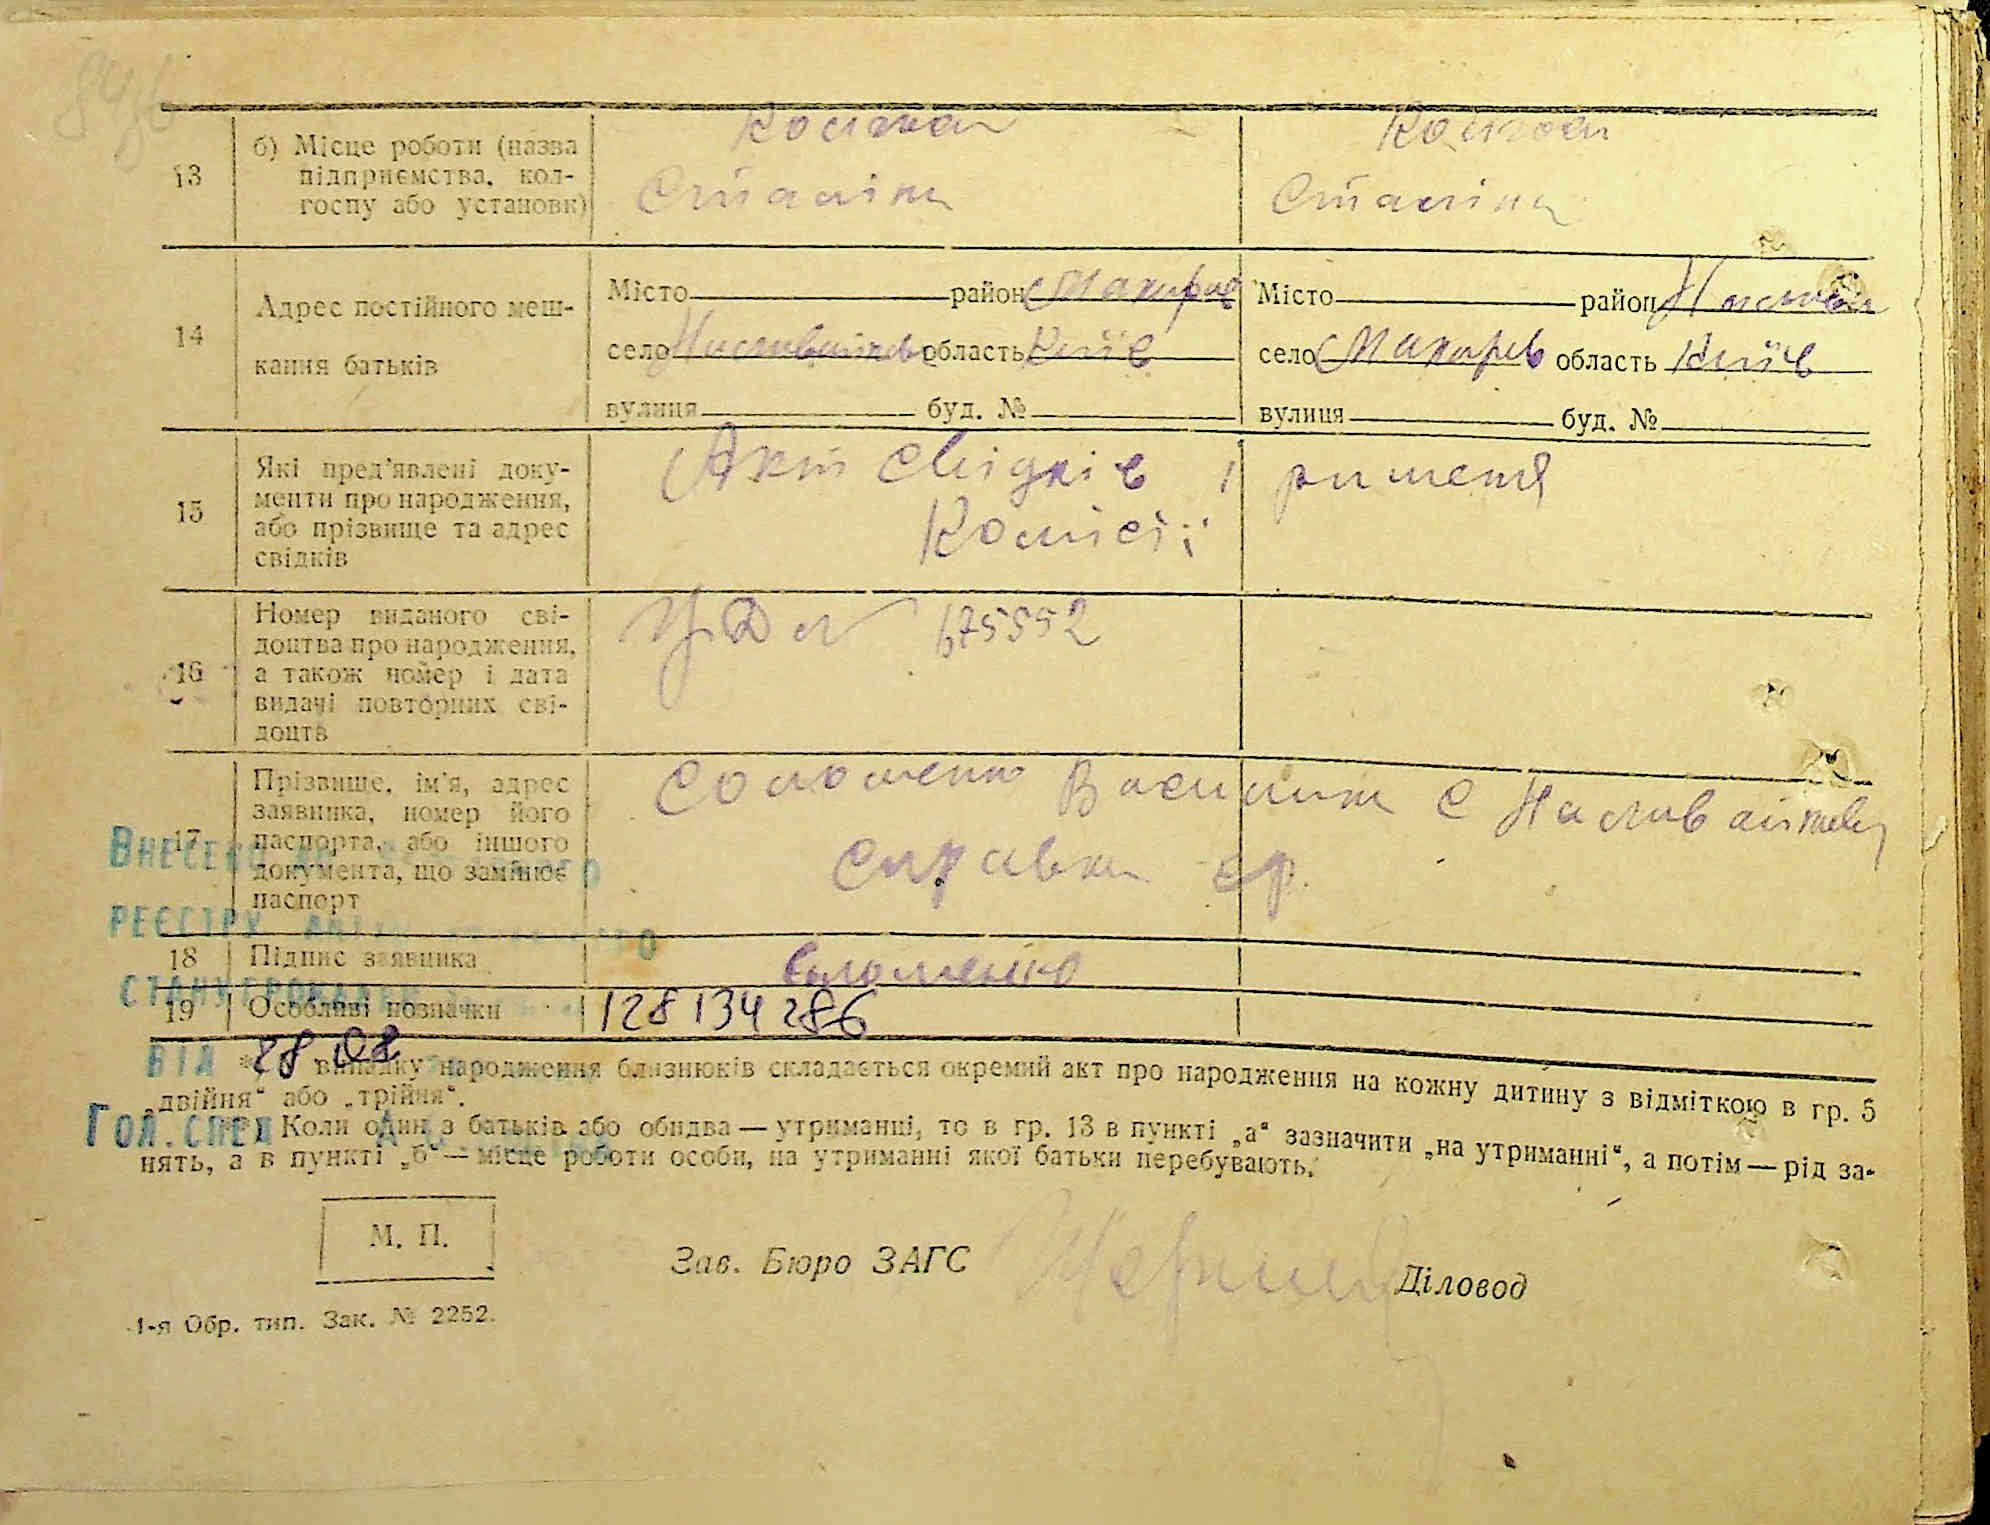 13 б) Місце роботи (назва Колгосп Колгосп
підприємства, кол- Сталіна Сталіна
госпу або установи)
Місто район Макарів Місто район
14 Адрес постійного меш-
кання батьків село Наливайківк область Київ село Макарів область Київ
вулиця буд. № вулиця буд. №
15 Які пред'явлені доку- Акт свідків і рішення
менти про народження, Комісії
або прізвище та адрес
свідків
16 Номер виданого сві- № 675552
доцтва про народження,
а також номер і дата
видачі повторних сві-
доцтв
17 Прізвище, ім'я, адрес Соломенко с Наливайківку
заявника, номер його
паспорта, або іншого Справка ср.
документа, що замінює
паспорт
18 Підпис заявника Соломенко
19 Особливі позначки 128134286
Внесено до
реєстру
стану громадян
від 28 02
Гол. спец
*) В випадку народження близнюків складається окремий акт про народження на кожну дитину з відміткою в гр. 5
„двійня“ або „трійня“.
**) Коли один з батьків або обидва — утриманці, то в гр. 13 в пункті „а“ зазначити „на утриманні“, а потім — рід за-
нять, а в пункті „б“ — місце роботи особи, на утриманні якої батьки перебувають.
М. П.
Зав. Бюро ЗАГС Діловод
1-я Обр. тип. Зак. № 2252.